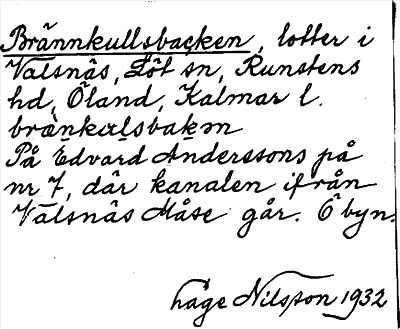 Brännkullsbacken, lotter i
Valsnäs, Löt sn, Runstens
hd, Öland, Kalmar l.
bràǹkɑlsbakən
På Edvard Anderssons på
nr 7, där kanalen ifrån
Valsnäs Måse går. Ö byn.
håge Nilsson 1932